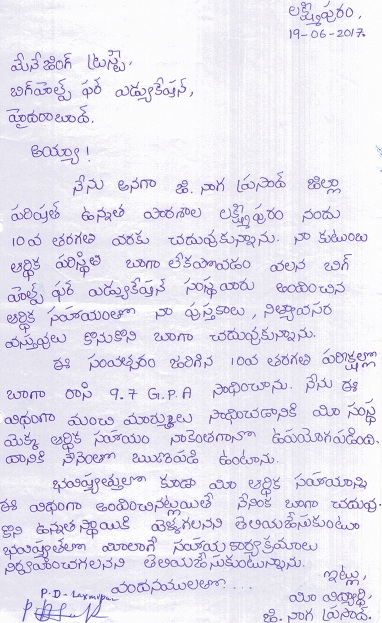 లక్ష్మీపురం,
19-06-2017.
మేనేజింగ్ ట్రస్టీ,
బిగ్‌హెల్ప్ ఫర్ ఎడ్యుకేషన్,
హైదరాబాద్.
అయ్యా!
నేను అనగా జి. నాగ ప్రసాద్ జిల్లా
పరిషత్ ఉన్నత పాఠశాల లక్ష్మీపురం నందు
10వ తరగతి వరకు చదువుకున్నాను. నా కుటుంబ
ఆర్థిక పరిస్థితి బాగా లేకపోవడం వలన బిగ్
హెల్ప్ ఫర్ ఎడ్యుకేషన్ సంస్థవారు అందించిన
ఆర్థిక సహాయంతో నా పుస్తకాలు, నిత్యావసర
వస్తువులు కొనుకొని బాగా చదువుకున్నాను.
ఈ సంవత్సరం జరిగిన 10వ తరగతి పరీక్షల్లో
బాగా రాసి 9.7 G.P.A సాధించాను. నేను ఈ
విధంగా మంచి మార్కులు సాధించడానికి మీ సంస్థ
యొక్క ఆర్థిక సహాయం నాకెంతగానో ఉపయోగపడింది.
దానికి నేనెంతో ఋణపడి ఉంటాను.
భవిష్యత్తులో కూడా మీ ఆర్థిక సహాయాన్ని
ఈ విధంగా అందించినట్లయితే నేనింకా బాగా చదువు-
కొని ఉన్నత స్థాయికి వెళ్ళగలనని తెలియజేసుకుంటూ
భవిష్యత్‌లో మీలాగే సహాయ కార్యక్రమాలు
నిర్వహించగలనని తెలియజేసుకుంటున్నాను.
వందనములతో....
ఇట్లు,
మీ విద్యార్థి,
జి. నాగ ప్రసాద్.
P-D-Laxmipur